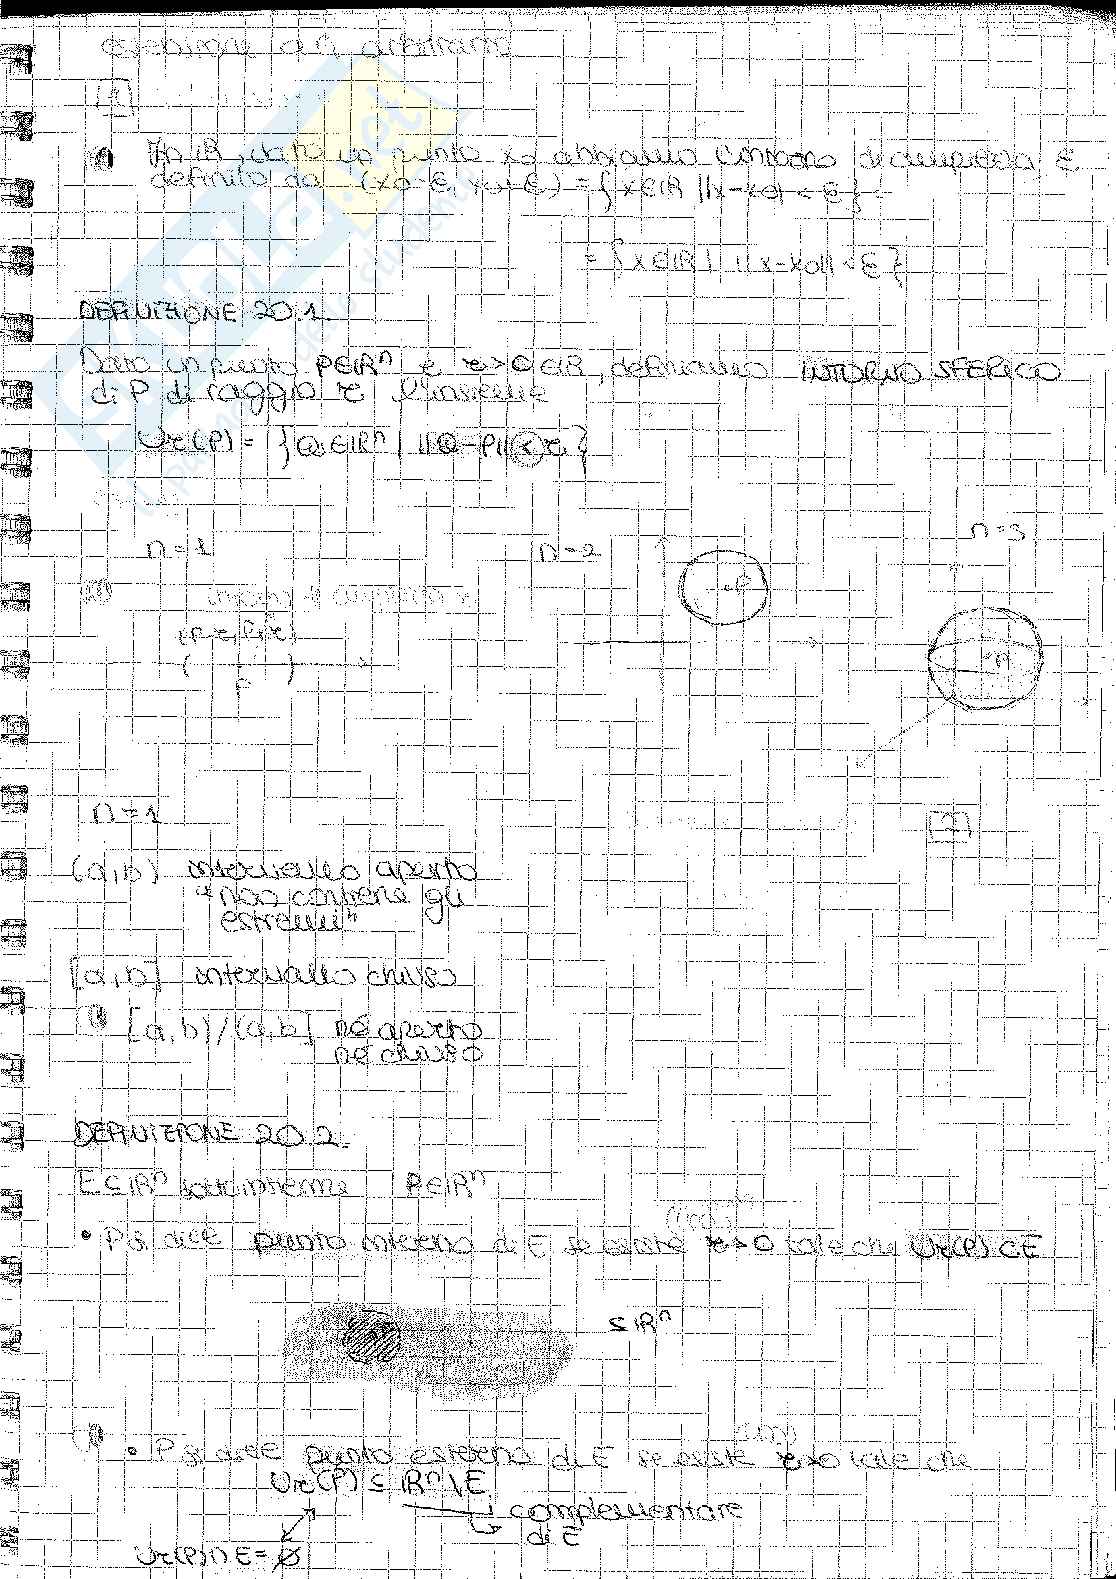 [1]
In ℝ, dato un punto x₀ abbiamo l'intorno di ampiezza ε
definito da (x₀-ε, x₀+ε) = {x∈ℝ | |x-x₀| < ε} =
= {x∈ℝ | ||x-x₀|| < ε}
DEFINIZIONE 20.1.
Dato un punto P∈ℝⁿ e r>0∈ℝ, definiamo INTORNO SFERICO
di P di raggio r l'insieme
Ur(P) = {Q∈ℝⁿ | ||Q-P|| < r}
n=1
n=2
n=3
intorno di ampiezza r
(P-r, P+r)
( P )
P
P
n=1
[2]
(a,b) intervallo aperto
"non contiene gli
estremi"
[a,b] intervallo chiuso
[a,b)/(a,b] né aperto
né chiuso
DEFINIZIONE 20.2.
E⊆ℝⁿ sottoinsieme P∈ℝⁿ
• P si dice punto interno di E se esiste r>0 tale che Ur(P)⊂E
⊆ℝⁿ
• P si dice punto esterno di E se esiste r>0 tale che
Ur(P) ⊆ ℝⁿ\E
complementare
di E
Ur(P)∩E=∅